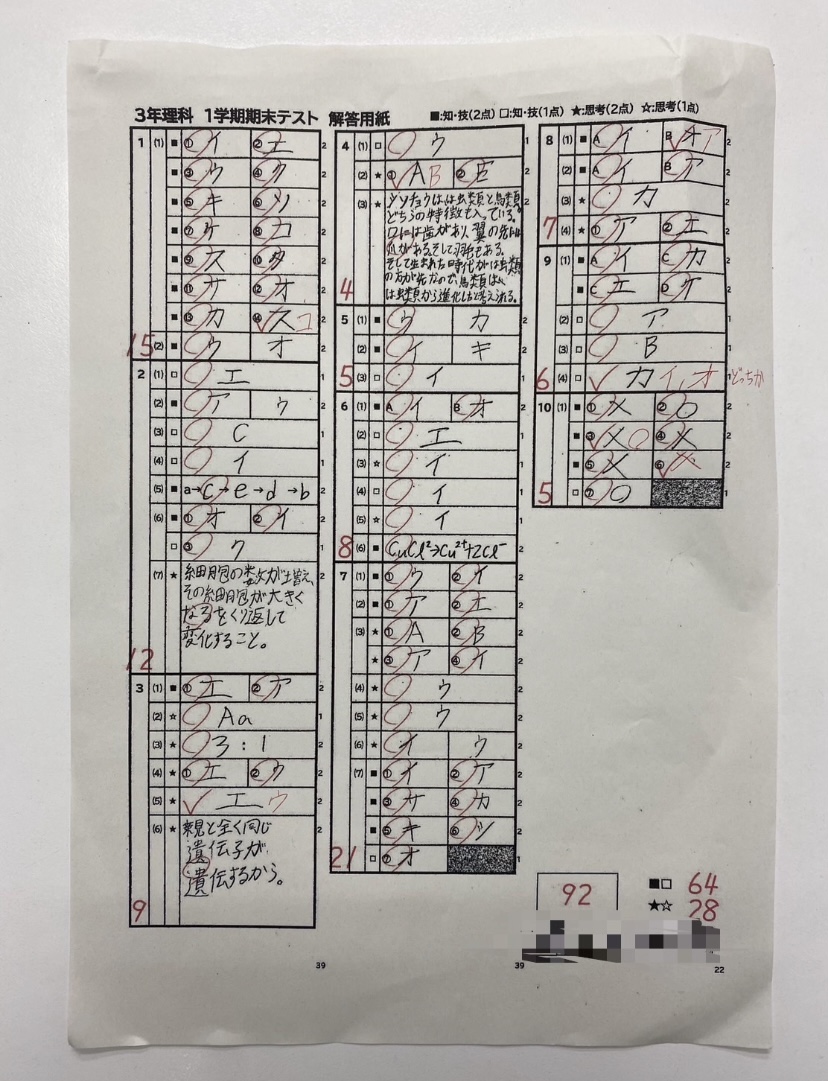 3年理科 1学期期末テスト 解答用紙 ■:知・技(2点) □:知・技(1点) ★:思考(2点) ☆:思考(1点)
1 (1) ■ ① イ ② エ 2
■ ③ ウ ④ ク 2
■ ⑤ キ ⑥ ソ 2
■ ⑦ ケ ⑧ コ 2
■ ⑨ ス ⑩ タ 2
■ ⑪ サ ⑫ オ 2
■ ⑬ カ ⑭ ス コ 2
15 (2) ■ ウ オ 2
2 (1) □ エ 1
(2) ■ ア ウ 2
(3) □ C 1
(4) □ イ 1
(5) ■ a→c→e→d→b 2
(6) ■ ① オ ② イ 2
□ ③ ク 1
(7) ★ 細胞の数が増え、 2
その細胞が大きく
なるをくり返して
変化すること。
12
3 (1) ■ ① エ ② ア 2
(2) ☆ Aa 1
(3) ★ 3:1 2
(4) ★ ① エ ② ウ 2
(5) ★ エ ウ 2
(6) ★ 親と全く同じ 2
遺伝子が
遺伝するから。
9
39
4 (1) □ ウ 1
(2) ★ ① A B ② E 2
(3) ★ シソチョウはは虫類と鳥類 2
どちらの特徴も入っている。
口には歯があり、翼の先には
爪がある。そして羽毛もある。
そして生まれた時代がは虫類
の方が先なので、鳥類は
は虫類から進化したと考えられる。
4
5 (1) ■ ウ カ 2
(2) ■ イ キ 2
5 (3) □ イ 1
6 (1) ■ A イ B オ 2
(2) □ エ 1
(3) ☆ イ 1
(4) □ イ 1
(5) ☆ イ 1
8 (6) ■ CuCl²→Cu²⁺+2Cl⁻ 2
7 (1) ■ ① ウ ② イ 2
(2) ■ ① ア ② エ 2
(3) ★ ① A ② B 2
★ ③ ア ④ イ 2
(4) ★ ウ 2
(5) ★ ウ 2
(6) ★ イ ウ 2
(7) ■ ① イ ② ア 2
■ ③ サ ④ カ 2
■ ⑤ キ ⑥ ツ 2
21 □ ⑦ オ 1
39
8 (1) ■ A イ B オ ア 2
(2) ■ A イ B ア 2
(3) ★ カ 2
7 (4) ★ ① ア ② エ 2
9 (1) ■ A イ C カ 2
■ C エ D ケ 2
(2) □ ア 1
(3) □ B 1
6 (4) □ カ イ,オ 1 どっちか
10 (1) ■ ① × ② ○ 2
■ ③ × ○ ④ × 2
■ ⑤ × ⑥ × 2
5 □ ⑦ ○ 1
92
■□ 64
★☆ 28
22